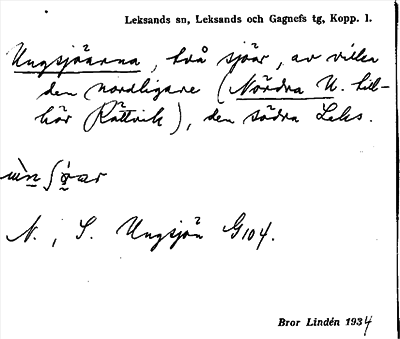 Leksands sn, Leksands och Gagnefs tg, Kopp. l.
Ungsjöarna, två sjöar, av vilka
den nordligare (Nördra U. till-
hör Rättvik), den södra Leks.
N., S. Ungsjön G104.
Bror Lindén 1934